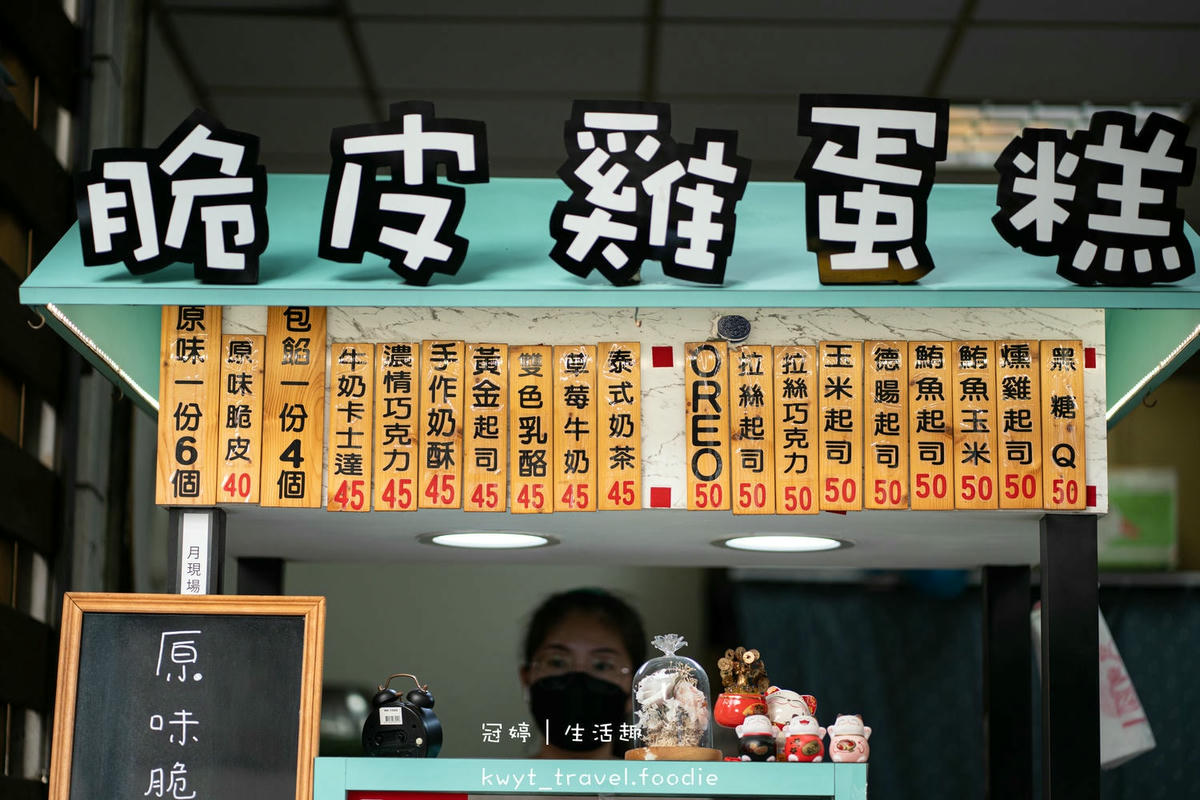 脆皮雞蛋糕
原味一份6個
原味脆皮 40
包餡一份4個
牛奶卡士達 45
濃情巧克力 45
手作奶酥 45
黃金起司 45
雙色乳酪 45
草莓牛奶 45
泰式奶茶 45
OREO 50
拉絲起司 50
拉絲巧克力 50
玉米起司 50
德腸起司 50
鮪魚起司 50
鮪魚玉米 50
燻雞起司 50
黑糖Q 50
月現場
原味脆
冠婷｜生活趣
kwyt_travel.foodie